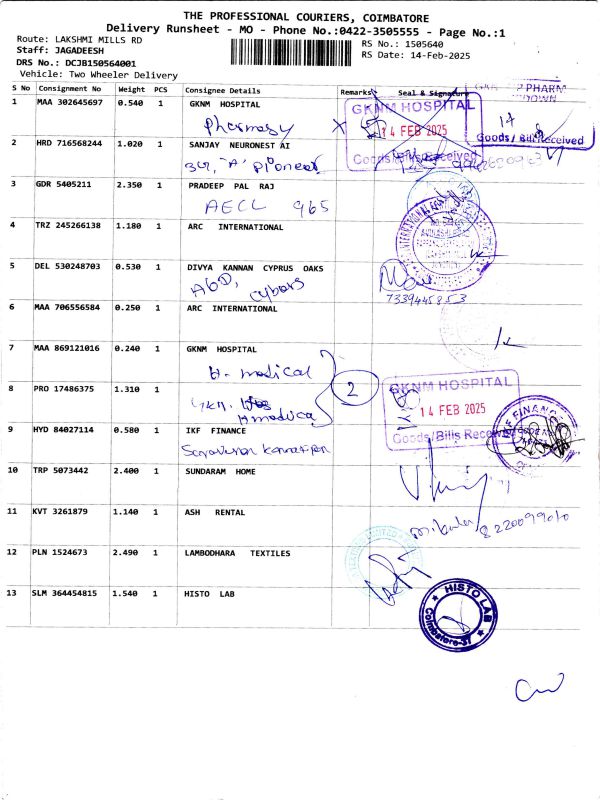 THE PROFESSIONAL COURIERS, COIMBATORE
Delivery Runsheet - MO - Phone No.:0422-3505555 - Page No.:1
Route: LAKSHMI MILLS RD
Staff: JAGADEESH
DRS No.: DCJB150564001
Vehicle: Two Wheeler Delivery
RS No.: 1505640
RS Date: 14-Feb-2025
S No Consignment No Weight PCS Consignee Details Remarks Seal & Signature
1 MAA 302645697 0.540 1 GKNM HOSPITAL
pharmasy
GKNM HOSPITAL
14 FEB 2025
Goods/Bills Received
PHARM
DOWN
14
Goods/Bill Received
2 HRD 716568244 1.020 1 SANJAY NEURONEST AI
"A" Pioneer
3 GDR 5405211 2.350 1 PRADEEP PAL RAJ
AECL 965
4 TRZ 245266138 1.180 1 ARC INTERNATIONAL
5 DEL 530248703 0.530 1 DIVYA KANNAN CYPRUS OAKS
7339445853
6 MAA 706556584 0.250 1 ARC INTERNATIONAL
7 MAA 869121016 0.240 1 GKNM HOSPITAL
H. medical
2
GKNM HOSPITAL
14 FEB 2025
Goods/Bills Received
8 PRO 17486375 1.310 1
9 HYD 84027114 0.580 1 IKF FINANCE
IKF FINANCE
10 TRP 5073442 2.400 1 SUNDARAM HOME
11 KVT 3261879 1.140 1 ASH RENTAL
8220099010
12 PLN 1524673 2.490 1 LAMBODHARA TEXTILES
13 SLM 364454815 1.540 1 HISTO LAB
HISTO LAB
Coimbatore-37